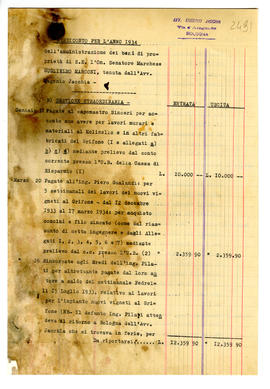 AVV. EUGENIO JACCHIA
BOLOGNA
RENDICONTO PER L'ANNO 1934
dell'amministrazione dei beni di pro-
prietà di S.E. l'On. Senatore Marchese
GUGLIELMO MARCONI, tenuta dall'Avv.
Eugenio Jacchia =
GESTIONE STRAORDINARIA =
ENTRATA USCITA
Gennaio Pagate al capomastro Sinceri per ac-
conto suo avere per lavori murari e
materiali al Molinello e in altri fab-
bricati del Grifone (I e allegati
) mediante prelievo dal conto
corrente presso l'U.B. della Cassa di
Risparmio (I) L. 10.000 -- L. 10.000 --
Marzo 20 Pagate all'ing. Piero Gualandi per
settimanali dei lavori dei nuovi vi-
gneti al Grifone - dal 12 dicembre
1933 al 17 marzo 1934: per acquisto
concimi e filo zincato (come dal rias-
sunto di detto ingegnere e dagli Alle-
gati 1, 2, 3, 4, 5, 6, e 7) mediante
prelievo dal c.c. presso l'U.B. (2) " 2.359.90 " 2.359.90
Rimborsate agli Eredi dell'ing. Pila-
ti per altrettante pagate dal loro au-
tore a saldo del settimanale Fedrel-
li (5 luglio 1933), relativo ai lavori
per l'impianto nuovi vigneti al Gri-
fone (NB. Il defunto ing. Pilati atten-
deva il ritorno a Bologna dell'Avv.
Jacchia che si trovava in ferie, per
Da riportarsi L. 12.359 90 L. 12.359 90